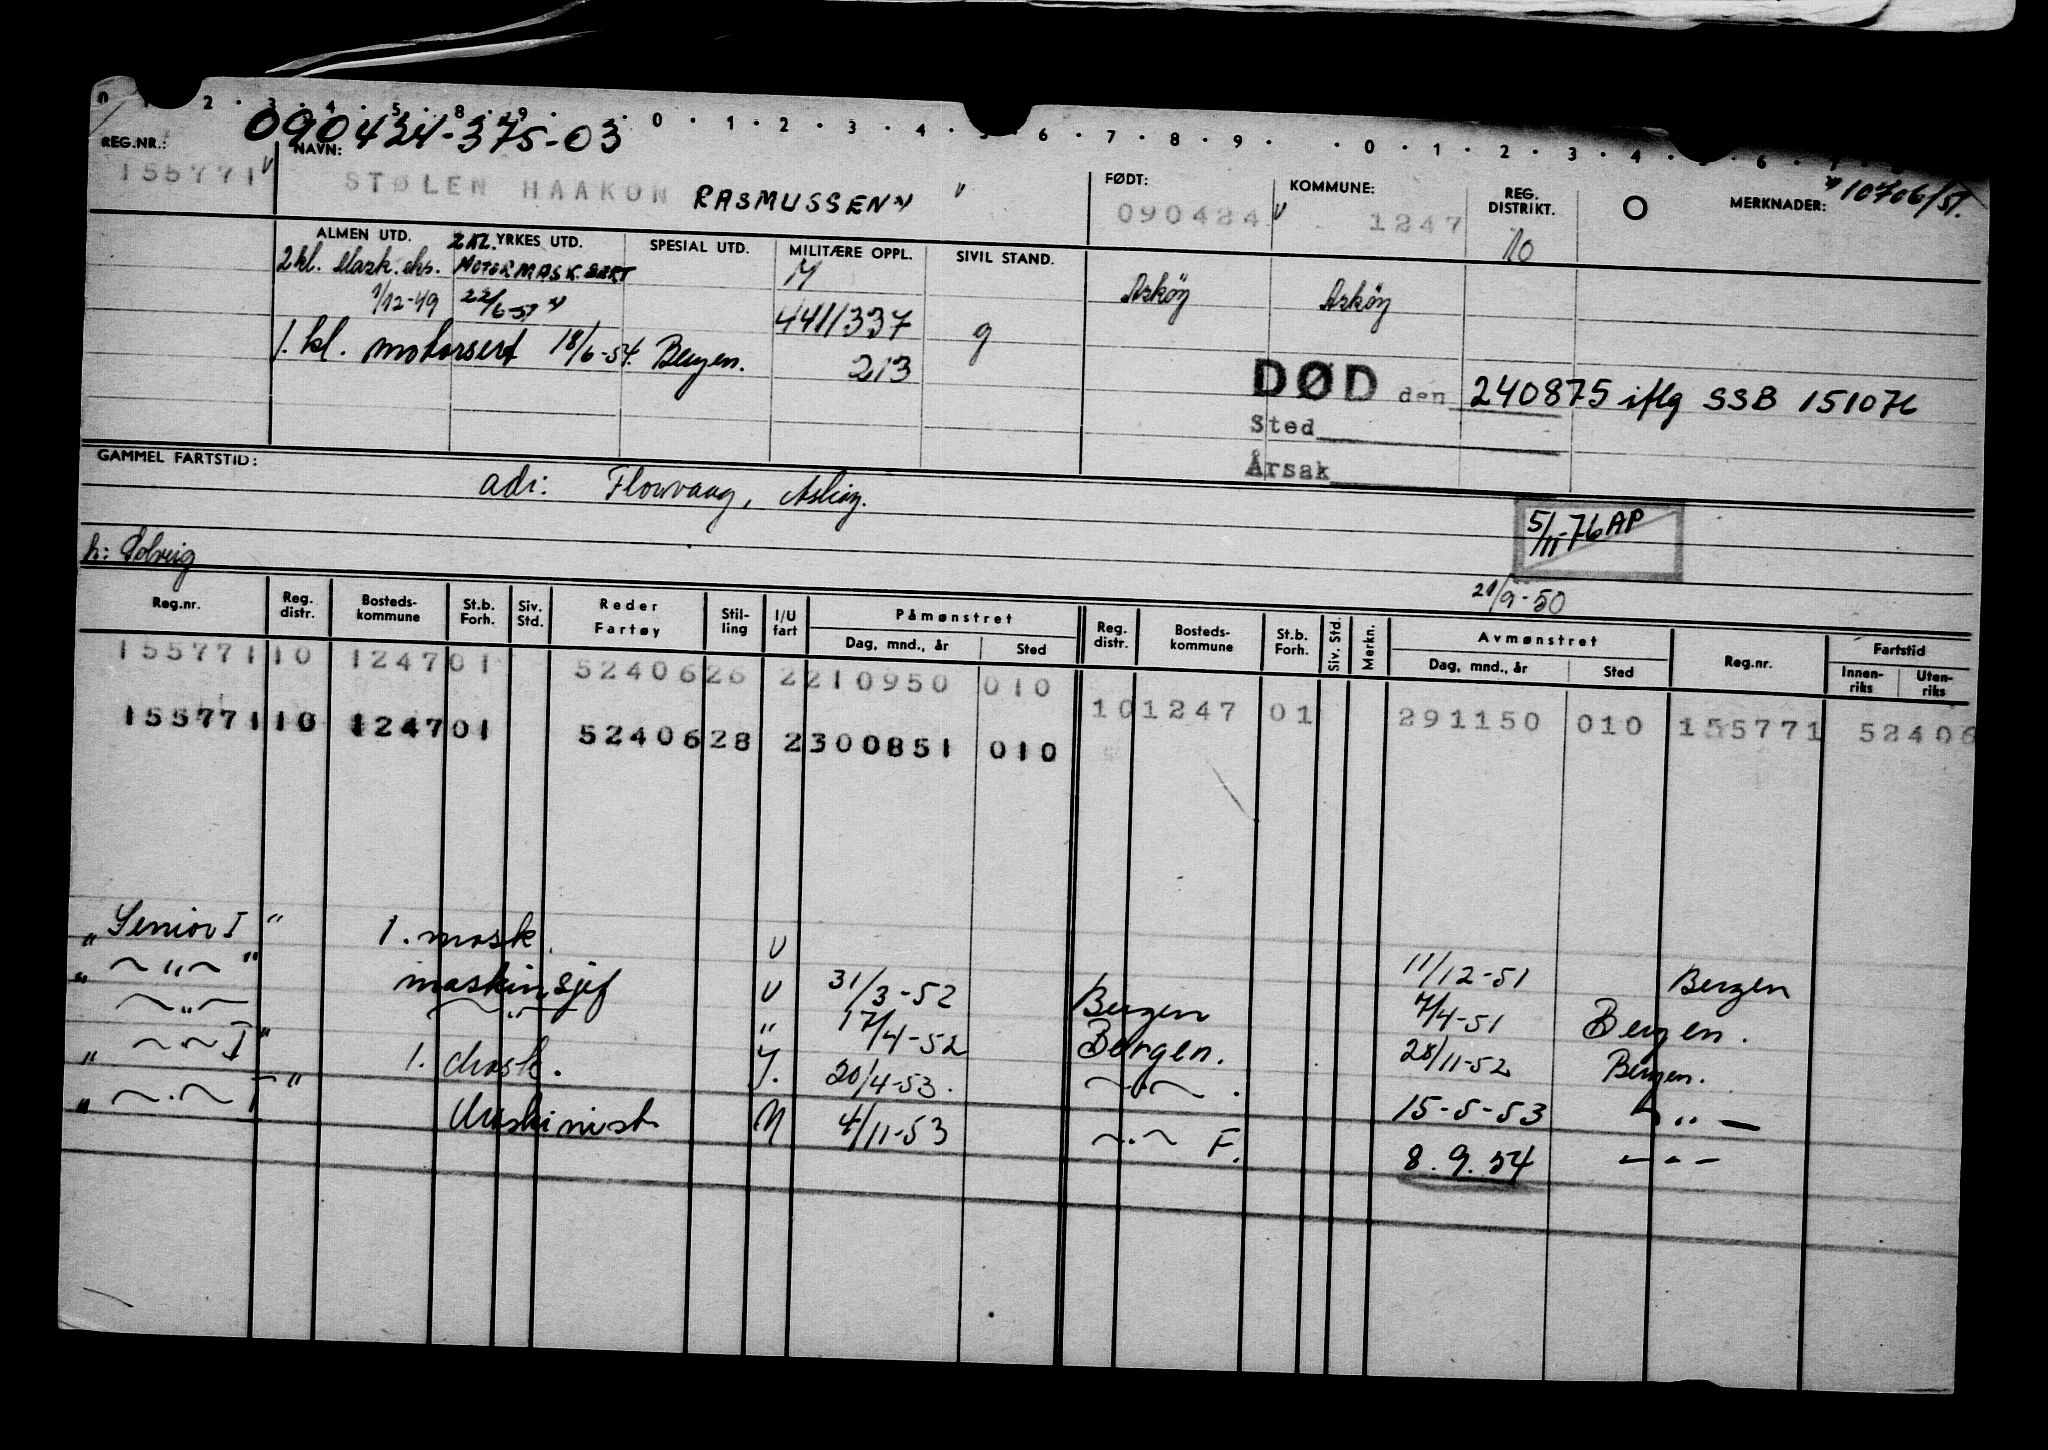 0 1 2 · 3 · 4 · 5 · 8 · 9 · 0 · 1 · 2 · 3 · 4 · 5 · 6 · 7 · 8 · 9 · · 0 · 1 · 2 · 3 · 4 · 6 ·
090424-375-03
REG.NR.: NAVN: FØDT: KOMMUNE: REG. DISTRIKT. O MERKNADER: 10706/51.
155771 STØLEN HAAKON RASMUSSEN 090424 1247 10
ALMEN UTD. 2KL. YRKES UTD. SPESIAL UTD. MILITÆRE OPPL. SIVIL STAND.
2 kl. Mask. eks. MOTORMASK.SERT M Askøy Askøy
1/12-49 22/6-51 441/337 g
1. kl. motorsert 18/6-54. Bergen. 213
DØD den 240875 iflg SSB 151076
Sted
Årsak
GAMMEL FARTSTID:
adr: Florvaag, Askøy.
5/11-76 AP
h: Solveig
21/9-50
Reg.nr. Reg. distr. Bosteds-kommune St.b. Forh. Siv. Std. Reder Fartøy Stil-ling I/U fart Påmønstret Reg. distr. Bosteds-kommune St.b. Forh. Siv. Std. Merkn. Avmønstret Reg.nr. Fartstid
Dag, mnd., år Sted Dag, mnd., år Sted Innen-riks Uten-riks
155771 10 1247 01 52406 26 2 210950 010
10 1247 01 291150 010 155771 52406
155771 10 1247 01 52406 28 2 300851 010
"Senior I" 1. mask. U 11/12-51 Bergen
" ~"~ " maskinsjef U 31/3-52 Bergen 7/4-51 Bergen.
~"~ ~"~ " 17/4-52 Bergen. 28/11-52 Bergen.
" ~"~ I" 1. Mask. J. 20/4-53. ~"~ . 15-5-53 ~"~
" ~"~ I" Maskinist M 4/11-53 ~"~ F. 8.9.54 ~"~